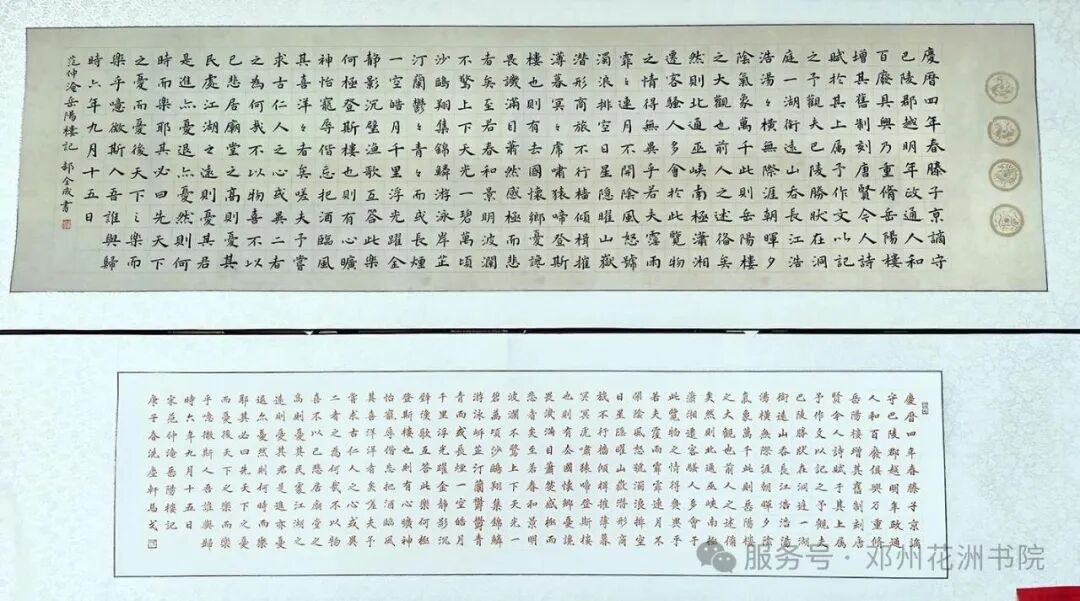 慶曆四年春滕子京謫守
巴陵郡越明年政通人和
百廢具興乃重修岳陽樓
增其舊制刻唐賢令人詩
賦於其上属予作文以記
之予觀夫巴陵勝狀在洞
庭一湖銜遠山吞長江浩
浩湯ミ横無際涯朝暉夕
陰氣象萬千此則岳陽樓
之大觀也前人之述俻矣
然則北通巫峡南極瀟湘
遷客騷人多會於此覽物
之情得無異乎若夫霪雨
霏ミ連月不開陰風怒號
濁浪排空日星隱曜山嶽
潛形商旅不行檣傾楫摧
薄暮冥ミ虎嘯猿啼登斯
樓也則有去國懷鄉憂讒
畏譏滿目蕭然感極而悲
者矣至若春和景明波瀾
不驚上下天光一碧萬頃
沙鷗翔集錦鱗游泳岸芷
汀蘭鬱ミ青ミ而或長煙
一空皓月千里浮光躍金
靜影沉璧漁歌互答此樂
何極登斯樓也則有心曠
神怡寵辱偕忘把酒臨風
其喜洋ミ者矣嗟夫予嘗
求古仁人之心或異二者
之為何哉不以物喜不以
已悲居廟堂之高則憂其
民處江湖之遠則憂其君
是進亦憂退亦憂然則何
時而樂耶其必曰先天下
之憂而憂後天下之樂而
樂乎噫微斯人吾誰與歸
時六年九月十五日
范仲淹岳陽樓記 郝全成書
慶曆四年春滕子京謫
守巴陵郡越明年政通
人和百廢俱興乃重修
岳陽樓增其舊制刻唐
賢今人詩賦于其上属
予作文以記之予觀夫
巴陵勝狀在洞庭一湖
銜遠山吞長江浩浩湯
湯横無際涯朝暉夕陰
氣象萬千此則岳陽樓
之大觀也前人之述備
矣然則北通巫峡南極
瀟湘遷客騷人多會于
此覽物之情得無異乎
若夫霪雨霏霏連月不
開陰風怒號濁浪排空
日星隱曜山嶽潛形商
旅不行檣傾楫摧薄暮
冥冥虎嘯猿啼登斯樓
也則有去國懷鄉憂讒
畏譏滿目蕭然感極而
悲者矣至若春和景明
波瀾不驚上下天光一
碧萬頃沙鷗翔集錦鱗
游泳岸芷汀蘭鬱鬱青
青而或長煙一空皓月
千里浮光躍金靜影沉
璧漁歌互答此樂何極
登斯樓也則有心曠神
怡寵辱偕忘把酒臨風
其喜洋洋者矣嗟夫予
嘗求古仁人之心或異
二者之為何哉不以物
喜不以己悲居廟堂之
高則憂其民處江湖之
遠則憂其君是進亦憂
退亦憂然則何時而樂
耶其必曰先天下之憂
而憂後天下之樂而樂
乎噫微斯人吾誰與歸
時六年九月十五日
宋范仲淹岳陽樓記
庚子春洗塵軒馬戈
服务号 · 邓州花洲书院